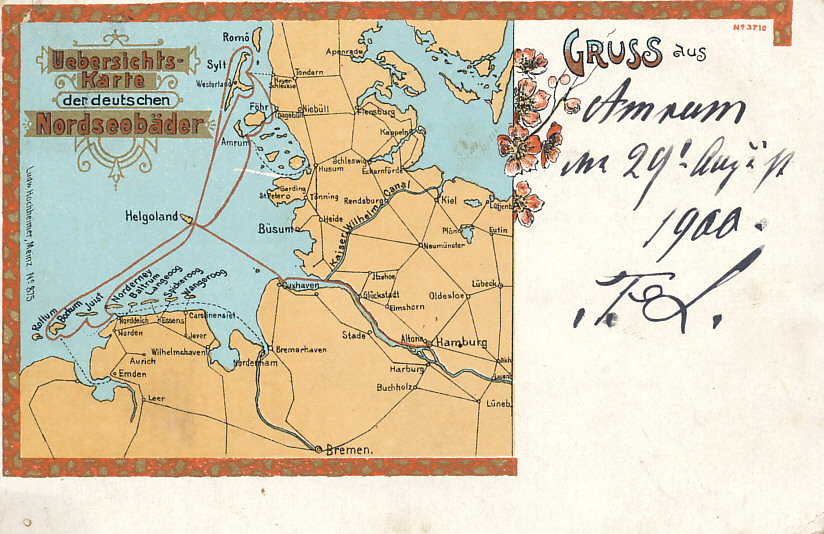 Uebersichts-
Karte
der deutschen
Nordseebäder
Nº 3710
GRUSS aus
Amrum
29t August
1900.
Romö
Sylt
Westerland
Föhr
Amrum
Apenrade
Tondern
Hoyer-
Schleusse
Niebüll
Dagebüll
Flensburg
Kappeln
Schleswig
Eckernförde
Husum
Garding
St. Peter
Tönning
Rendsburg
Kiel
Lütjenb
Helgoland
Büsum
Heide
Kaiser Wilhelm Canal
Plön
Eutin
Neumünster
Ludw. Hochheimer, Mainz Nº 875
Rottum
Borkum
Juist
Norderney
Baltrum
Langeoog
Spikeroog
Wangeroog
Cuxhaven
Itzehoe
Glückstadt
Elmshorn
Oldesloe
Lübeck
Norddeich
Essens
Carolinensiel
Norden
Jever
Wilhelmshaven
Aurich
Emden
Leer
Nordenham
Bremerhaven
Stade
Altona
Hamburg
Harburg
Buchholz
Lüneb
Bremen.